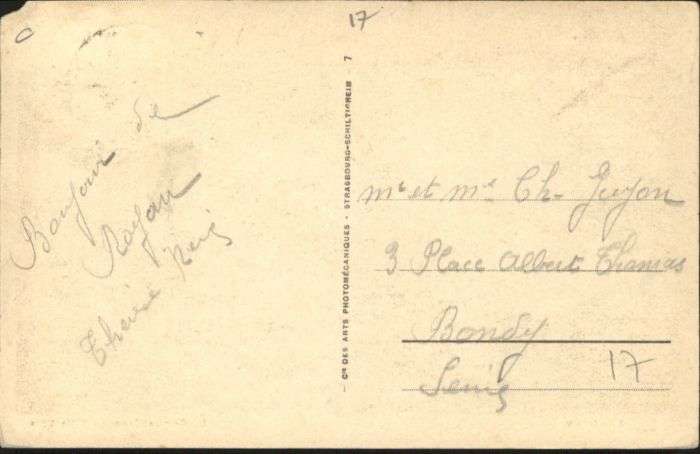 17
Bonjour de
Royan
Cie DES ARTS PHOTOMÉCANIQUES - STRASBOURG-SCHILTIGHEIM 7
Mr et Me Ch- Guyon
3 Place Albert Thomas
Bondy
Seine
17